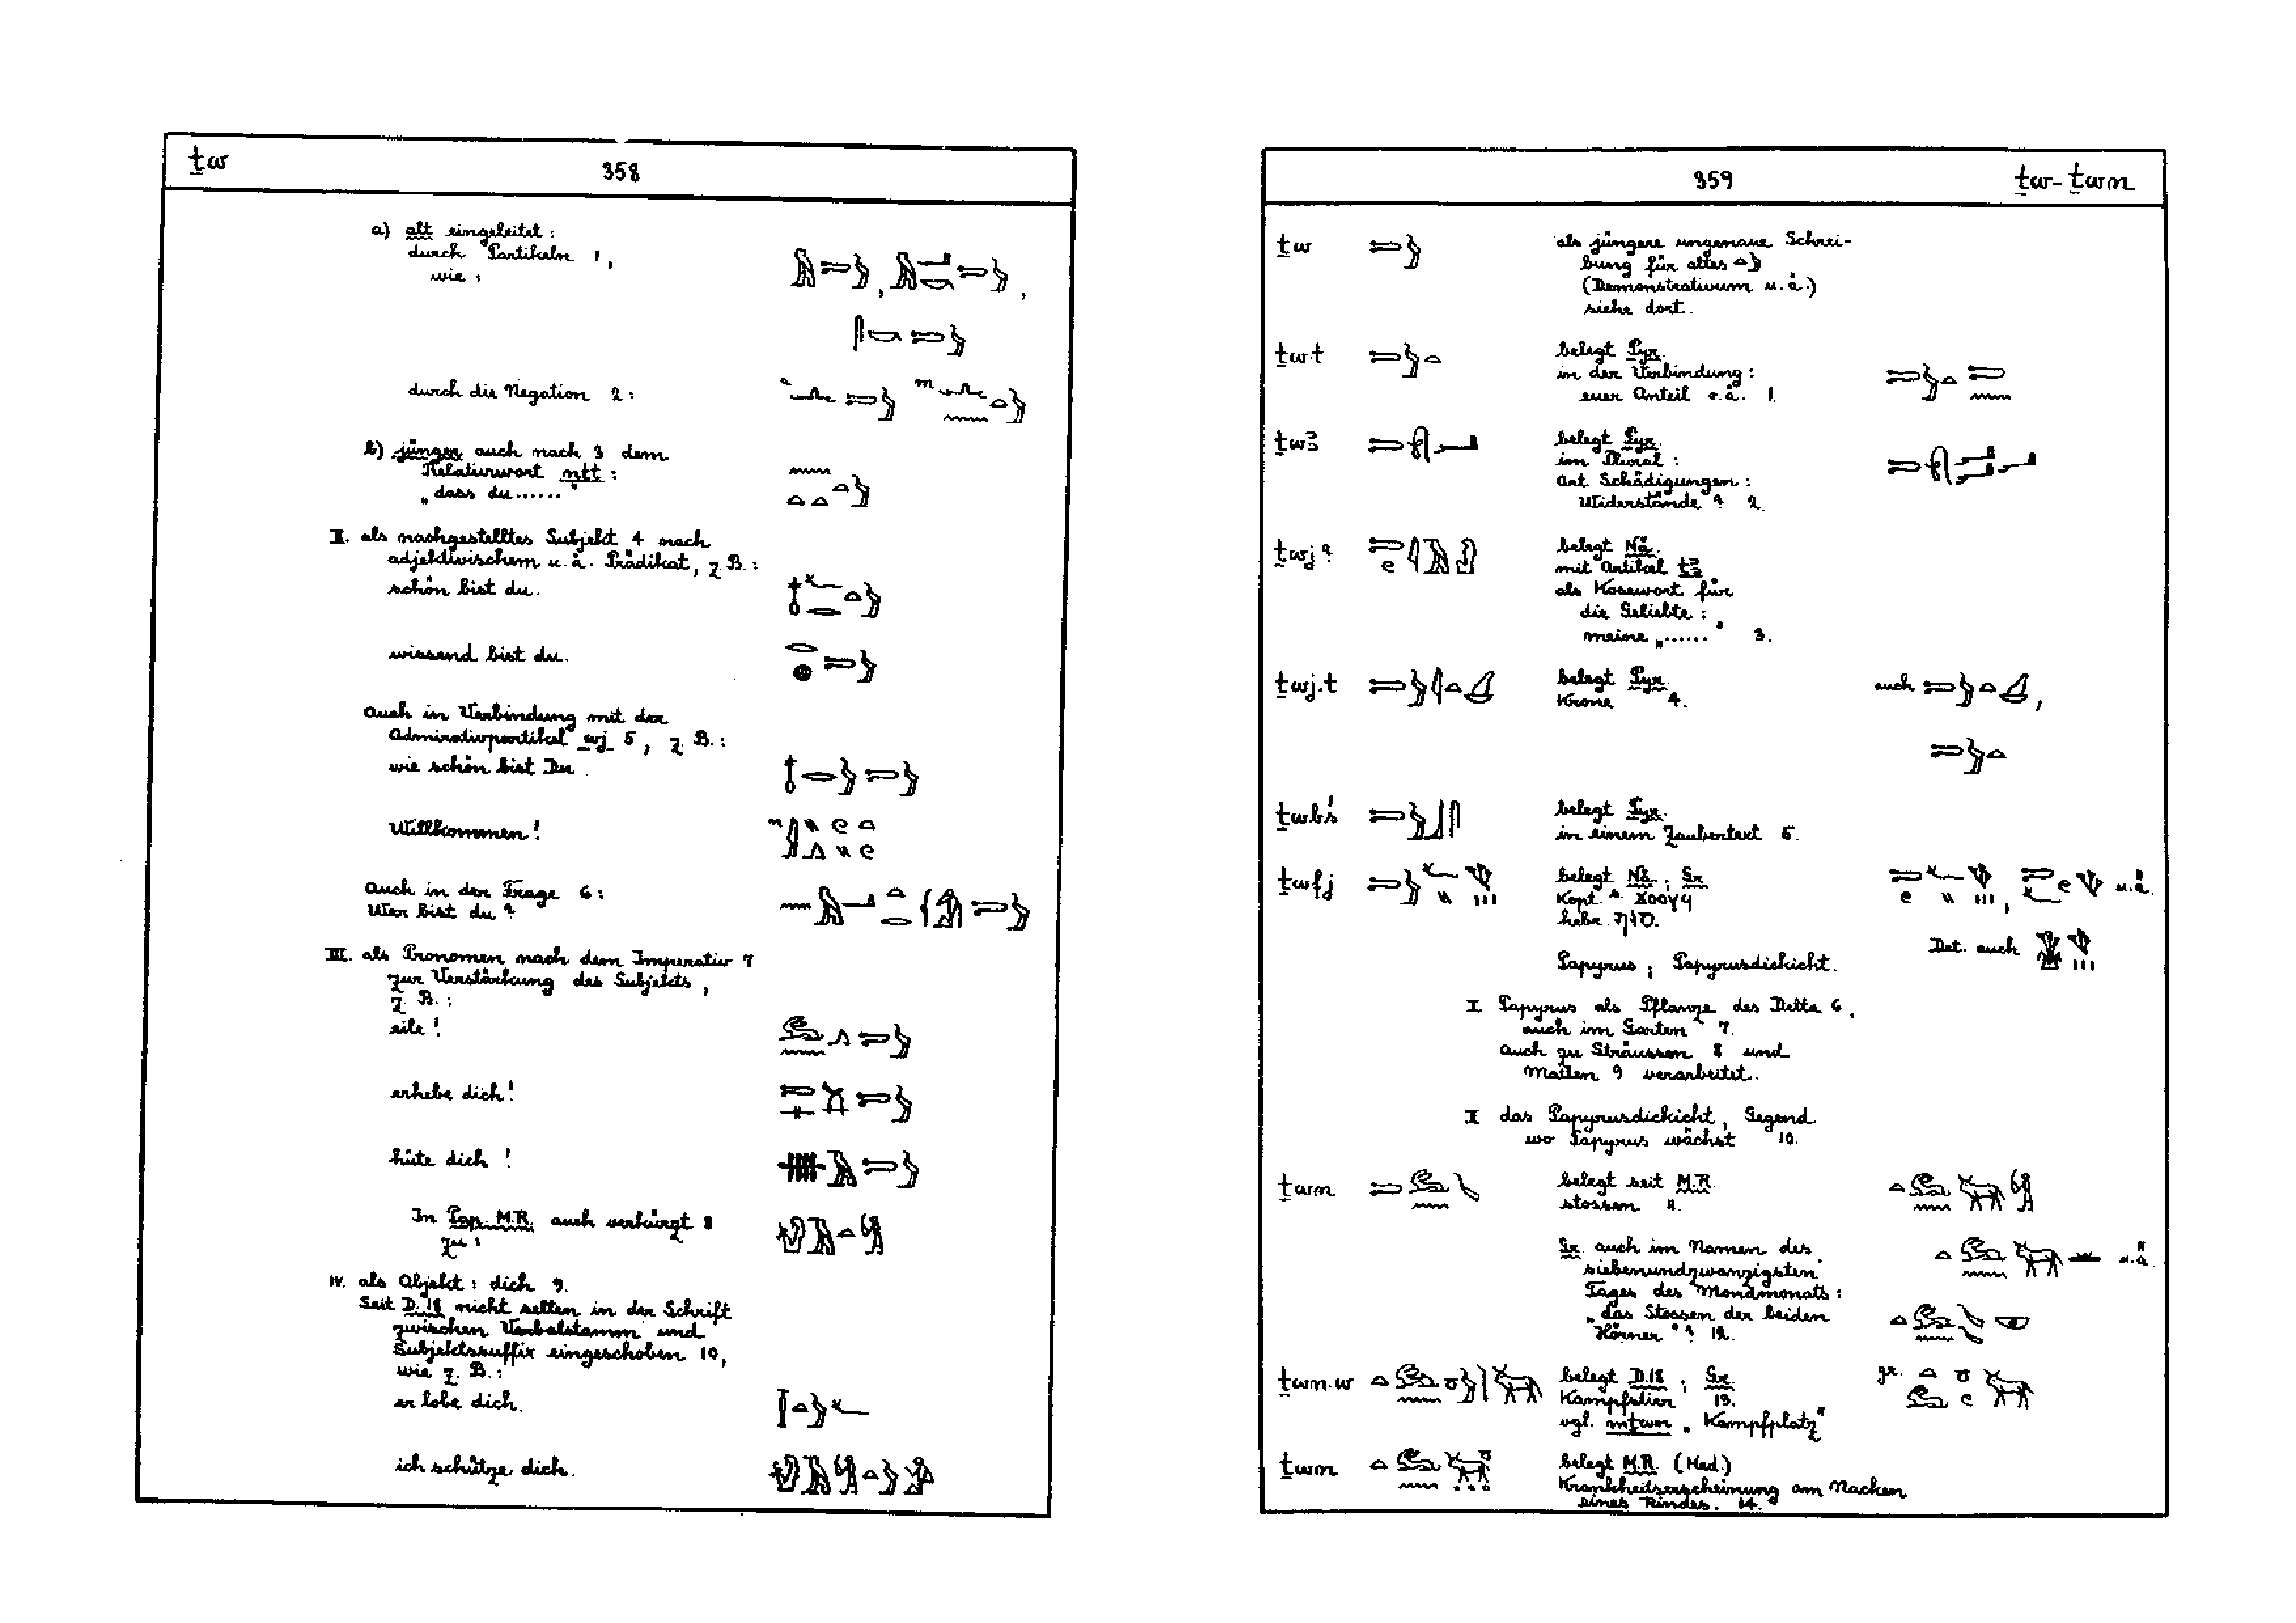 ṯw 358
a) alt eingeleitet:
durch Partikeln 1,
wie:
durch die Negation 2:
b) jünger auch nach 3 dem
Relativwort ntt:
„dass du......“
II. als nachgestelltes Subjekt 4 nach
adjektivischem u.ä. Prädikat, z.B.:
schön bist du.
wissend bist du.
Auch in Verbindung mit der
Admirativpartikel wj 5, z.B.:
wie schön bist Du.
Willkommen!
Auch in der Frage 6:
Wer bist du?
III. als Pronomen nach dem Imperativ 7
zur Verstärkung des Subjekts,
z.B.:
eile!
erhebe dich!
hüte dich!
In Pap. M.R. auch verkürzt 8
zu:
IV. als Objekt: dich 9.
Seit D.18 nicht selten in der Schrift
zwischen Verbalstamm und
Subjektssuffix eingeschoben 10,
wie z.B.:
er lobe dich.
ich schütze dich.
359 ṯw - ṯwn
ṯw als jüngere ungenaue Schrei-
bung für altes
(Demonstrativum u.ä.)
siehe dort.
ṯw.t belegt Pyr.
in der Verbindung:
euer Anteil o.ä. 1.
ṯwꜣ belegt Pyr.
im Plural:
Art Schädigungen:
Widerstände? 2.
ṯwj? belegt Nä.
mit Artikel tꜣ
als Kosewort für
die Geliebte:
meine „......“ 3.
ṯwj.t belegt Pyr. auch
Krone 4.
ṯwbś belegt Pyr.
in einem Zaubertext 5.
ṯwfj belegt Nä.; Gr. u.ä.
Kopt. ϫⲟⲟⲩϥ
hebr. סוף.
Det. auch
Papyrus; Papyrusdickicht.
I. Papyrus als Pflanze des Delta 6,
auch im Garten 7.
auch zu Sträussen 8 und
Matten 9 verarbeitet.
II das Papyrusdickicht, Gegend
wo Papyrus wächst 10.
ṯwn belegt seit M.R.
stossen 11.
Gr. auch im Namen des u.ä.
siebenundzwanzigsten
Tages des Mondmonats:
„das Stossen der beiden
Hörner“? 12.
ṯwn.w belegt D.18; Gr. gr.
Kampfstier 13.
vgl. mṯwn „Kampfplatz“
ṯwn belegt M.R. (Med.)
Krankheitserscheinung am Nacken
eines Rindes. 14.